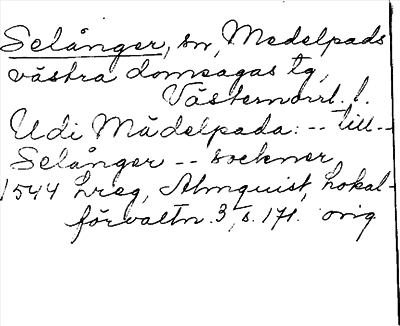 Selånger, sn, Medelpads
västra domsagas tg,
Västernorrl. l.
Udi Mådelpada: -- till --
Selånger -- sockner
1544 Lreg, Almquist, Lokal-
förvaltn. 3, s. 171. orig